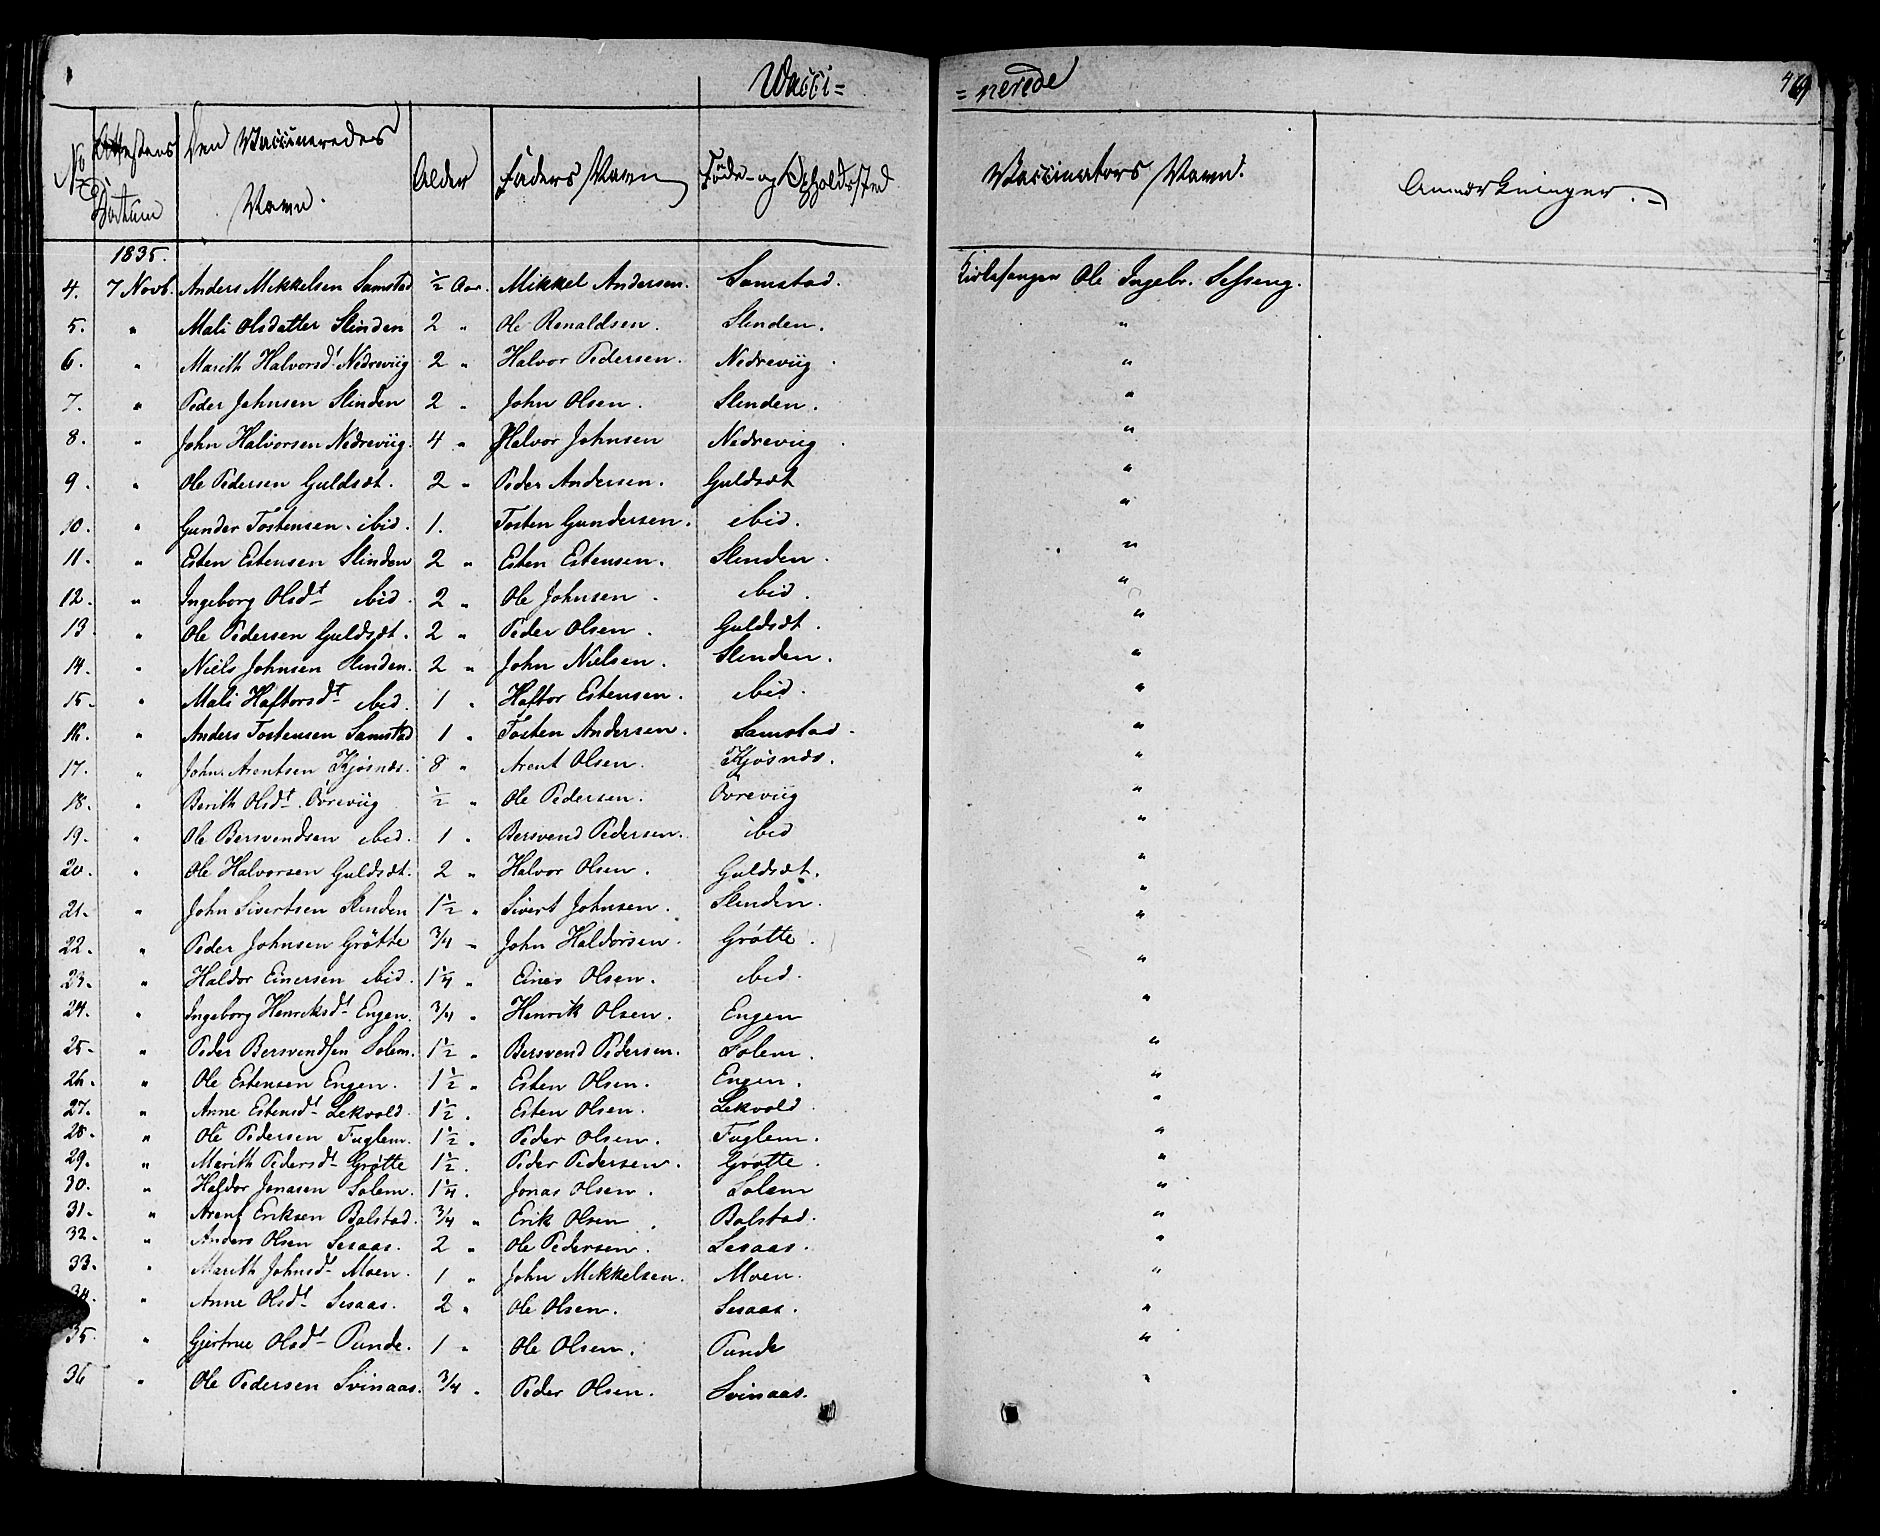 Vacci=
=nerede
469
No
Attestens Datum
Den Vaccineredes Navn.
Alder
Faders Navn
Føde- og Opholdssted
Vaccinators Navn.
Anmærkninger.
1835.
4. 7 Novb. Anders Mikkelsen Samstad ½ Aar. Mikkel Andersen. Samstad. Kirkesanger Ole Ingebr. Selseng.
5. " Mali Olsdatter Slinden 2 " Ole Renaldsen. Slinden. "
6. " Marith Halvorsdt Nedreviig 2 " Halvor Pedersen. Nedreviig. "
7. " Peder Johnsen Slinden 2 " John Olsen. Slinden. "
8. " John Halvorsen Nedreviig. 4 " Halvor Johnsen Nedreviig. "
9. " Ole Pedersen Guldsæt. 2 " Peder Andersen. Guldsæt "
10. " Gunder Tostensen. ibid. 1. Tosten Gundersen. ibid. "
11. " Esten Estensen Slinden 2 " Esten Estensen. Slinden. "
12. " Ingeborg Olsdt ibid. 2 " Ole Johnsen. ibid. "
13 " Ole Pedersen Guldsæt. 2 " Peder Olsen. Guldsæt. "
14. " Niels Johnsen Slinden. 2 " John Nielsen. Slinden. "
15. " Mali Haftorsdt ibid. 1 " Haftor Estensen. ibid. "
16. " Anders Tostensen Samstad 1 " Tosten Andersen. Samstad. "
17. " John Arentsen Kjøsnæs. 8 " Arent Olsen. Kjøsnæs. "
18. " Berith Olsdt Øvreviig ½ " Ole Pedersen. Øvreviig "
19. " Ole Bersvendsen ibid. 1 " Bersvend Pedersen. ibid "
20. " Ole Halvorsen Guldsæt. 2 " Halvor Olsen. Guldsæt. "
21. " John Sivertsen Slinden 1½ " Sivert Johnsen. Slinden. "
22. " Peder Johnsen Grøtte ¾ " John Haldorsen. Grøtte. "
23. " Haldor Einersen ibid. 1¼ " Einer Olsen. ibid. "
24. " Ingeborg Henriksdt Engen. ¾ " Henrik Olsen. Engen "
25. " Peder Bersvendsen Solem. 1½ " Bersvend Pedersen. Solem. "
26. " Ole Estensen Engen. 1½ " Esten Olsen. Engen. "
27. " Anne Estensdt Lekvold. 1½. Esten Olsen. Lekvold. "
28. " Ole Pedersen Fuglem. 1½. Peder Olsen. Fuglem. "
29. " Marith Pedersdt Grøtte 1½. Peder Pedersen. Grøtte. "
30. " Haldor Jonasen Solem. 1¼. Jonas Olsen. Solem "
31. " Arent Eriksen Balstad. ¾ " Erik Olsen. Balstad. "
32. " Anders Olsen Sesaas. 2 " Ole Pedersen. Sesaas. "
33. " Marith Johnsdt Moen. 1 " John Mikkelsen. Moen. "
34. " Anne Olsdt Sesaas. 2 " Ole Olsen. Sesaas. "
35. " Gjertrue Olsdt Tunde. 1 " Ole Olsen. Tunde "
36 " Ole Pedersen Svinaas. ¾ " Peder Olsen. Svinaas. "